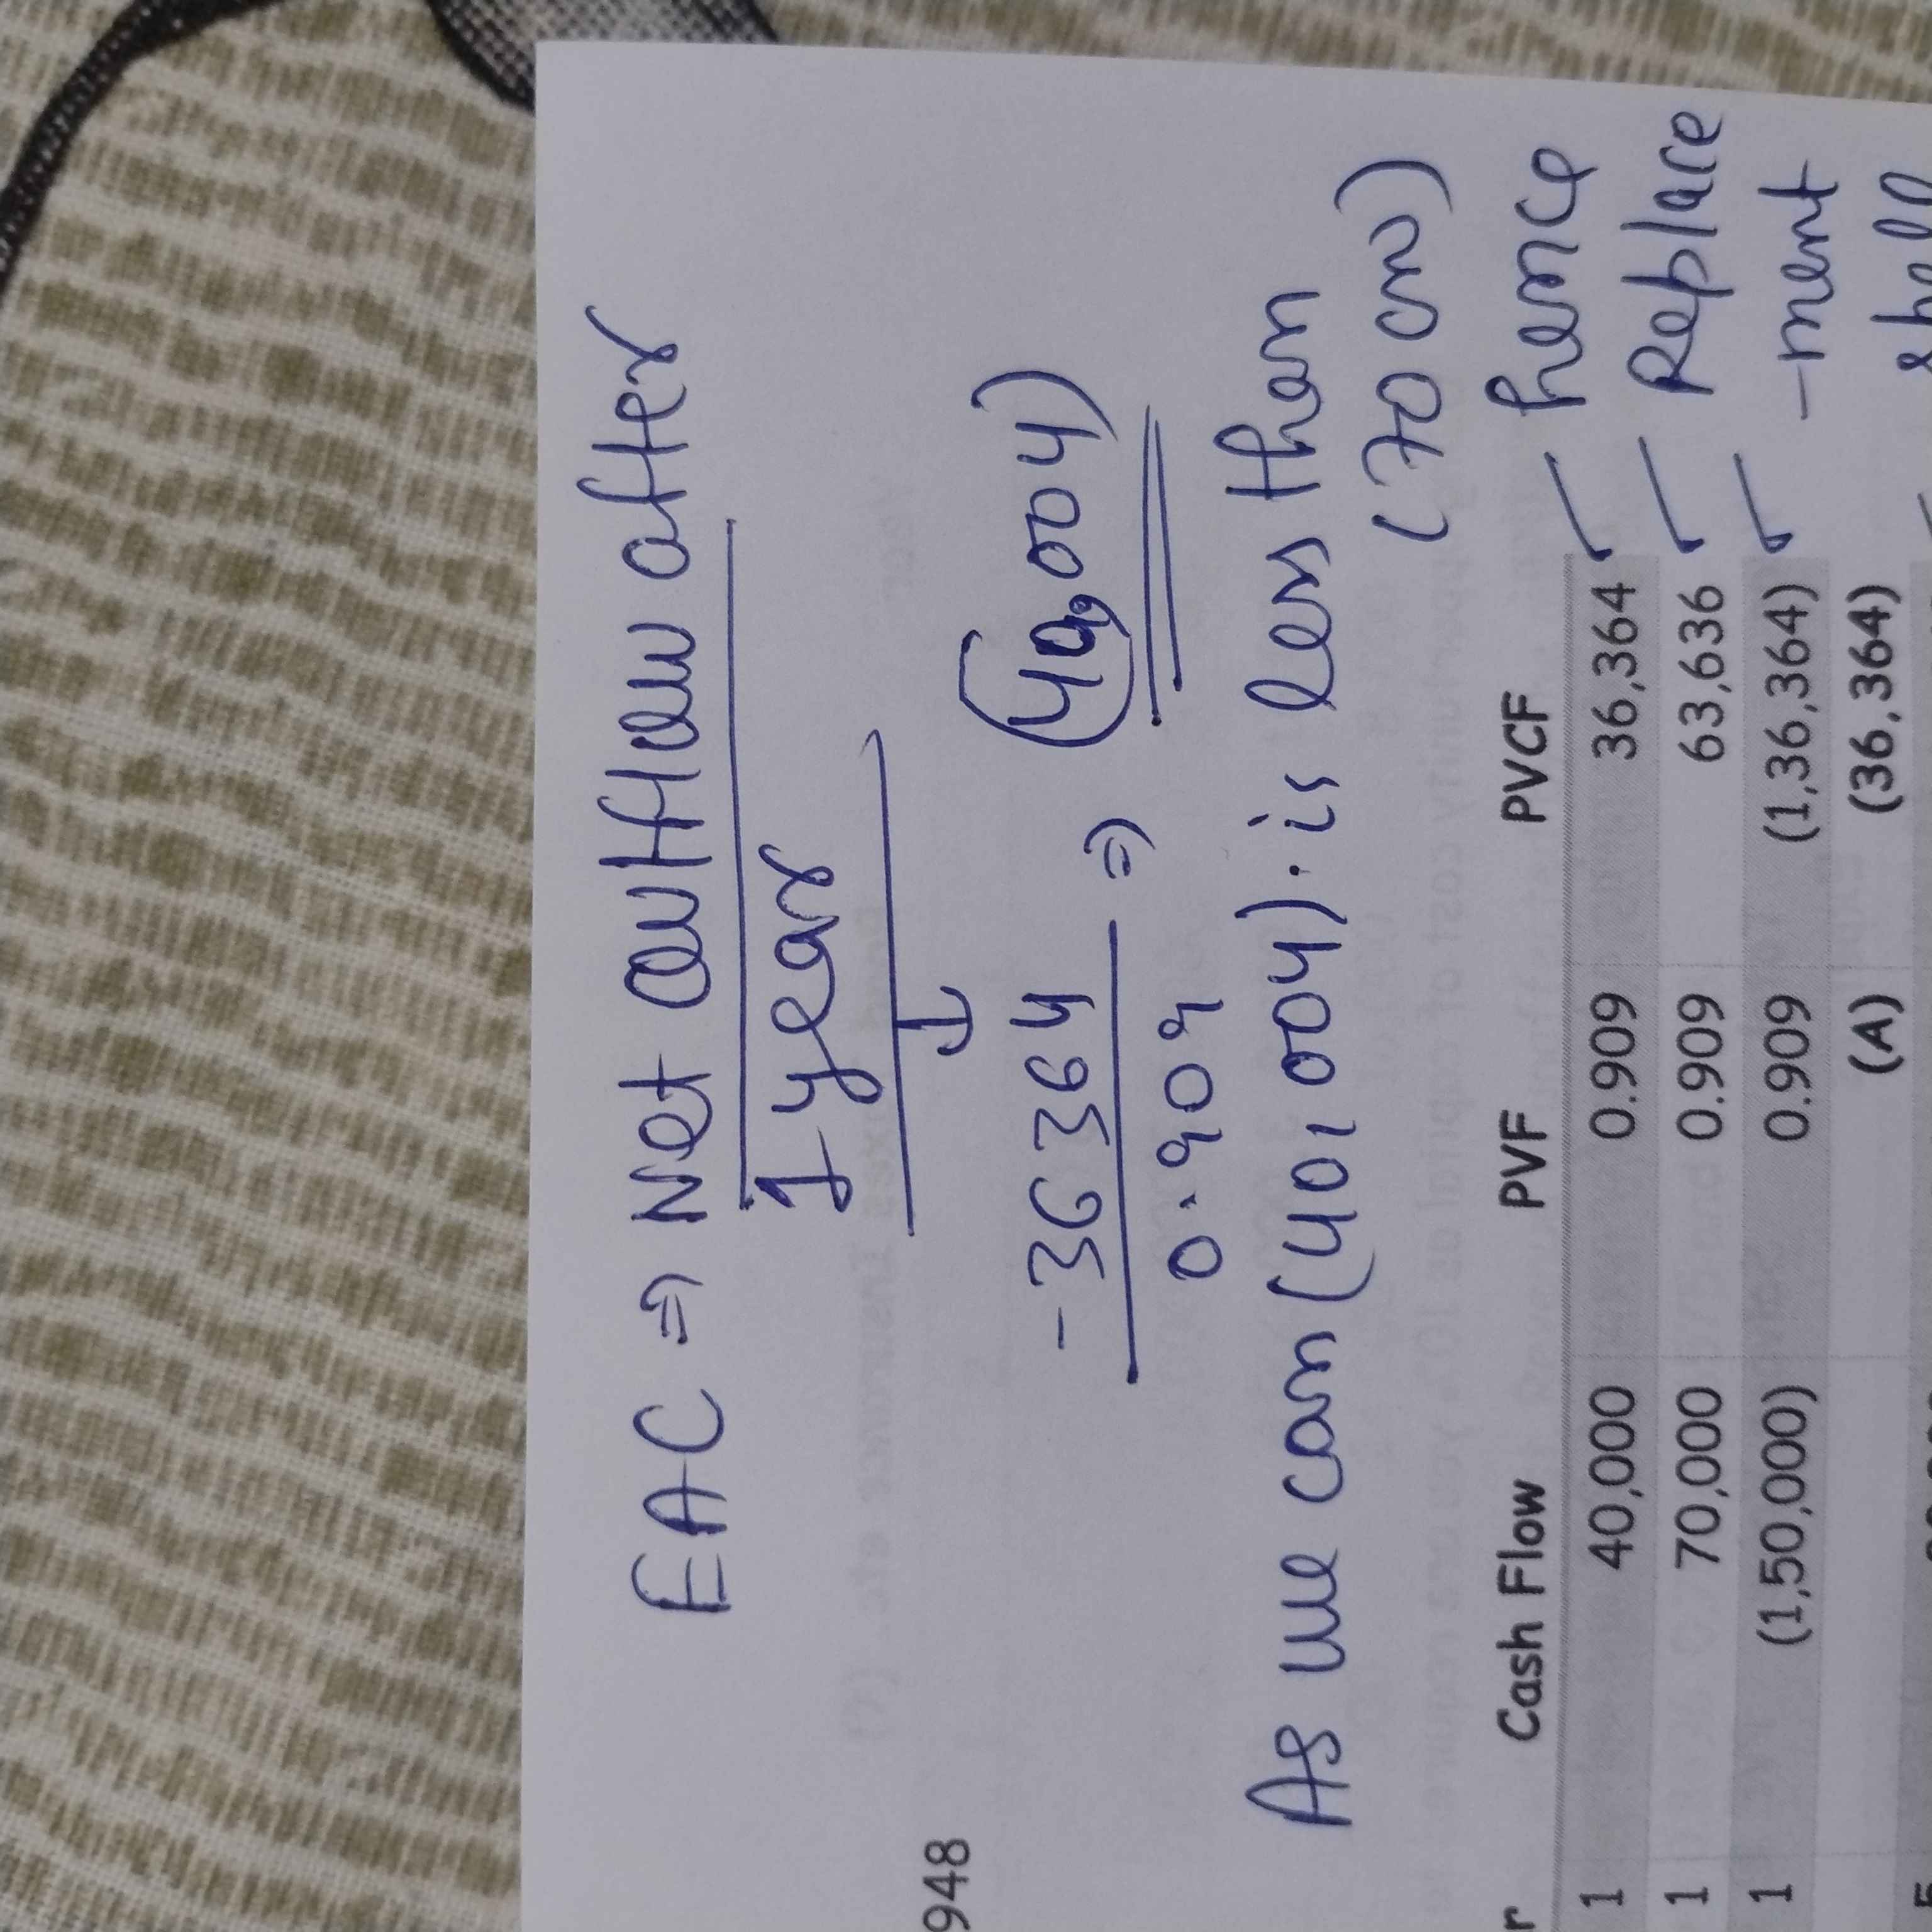 EAC ⇒ Net outflow after
1 year
948
-36364
0.909
⇒ (40,004)
As we can (40,004). is less than
(70 cm)
r Cash Flow PVF PVCF
1 40,000 0.909 36,364 hence
1 70,000 0.909 63,636 Replace
1 (1,50,000) 0.909 (1,36,364) -ment
(A) (36,364) shall